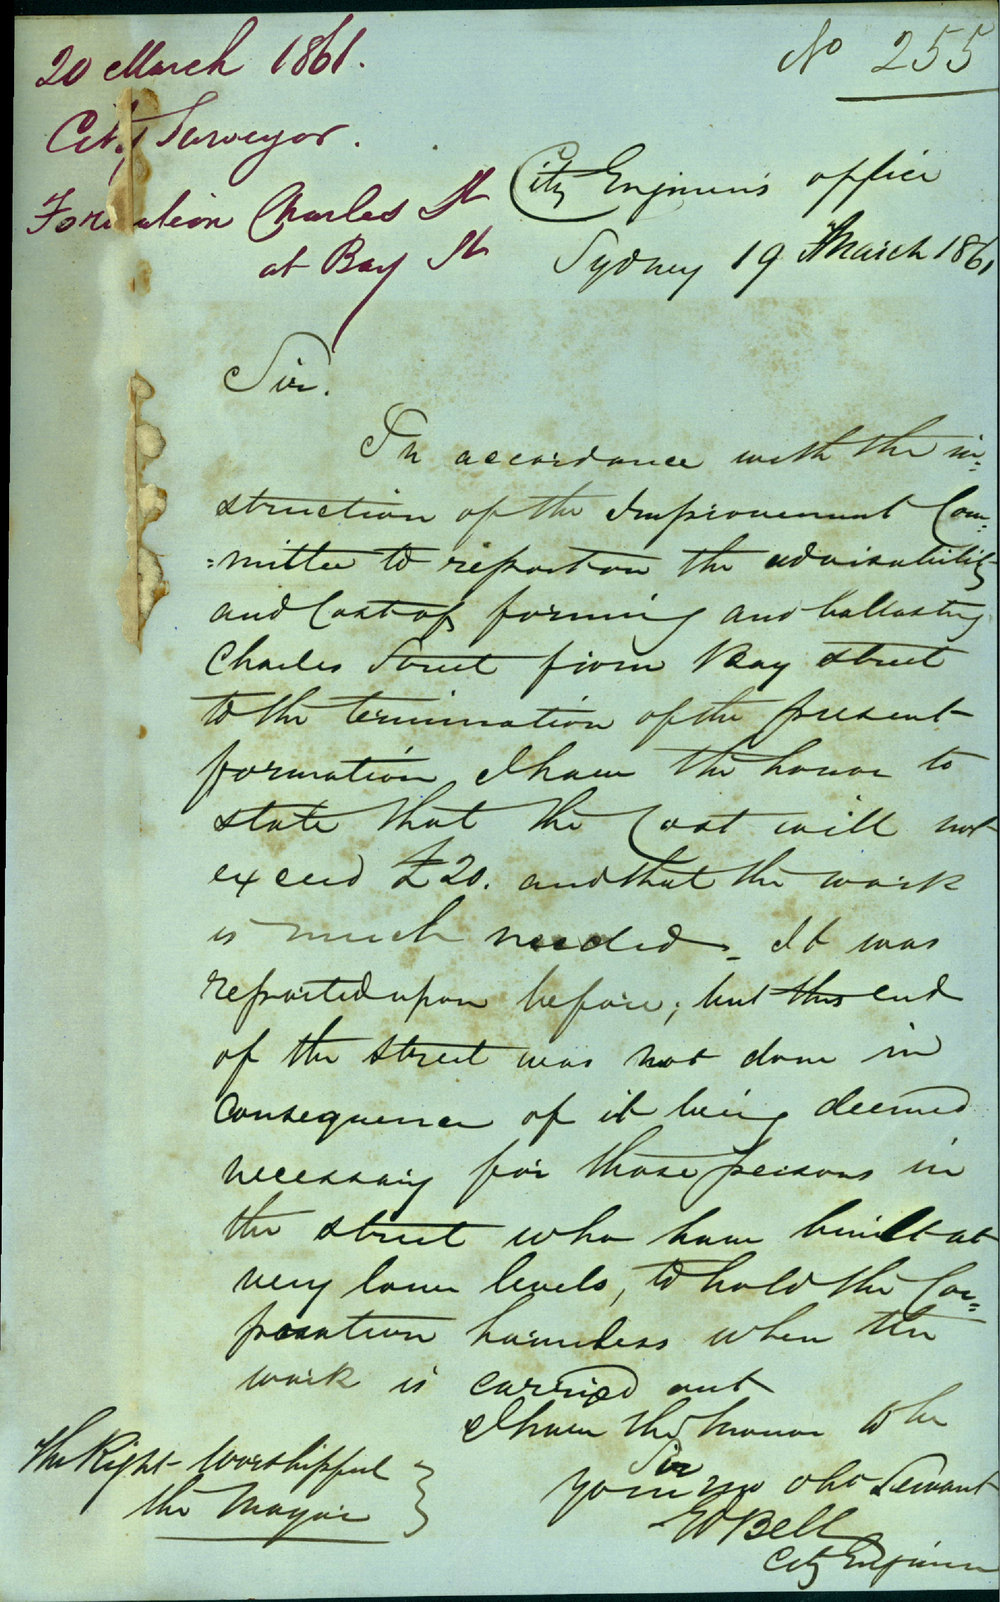 20 March 1861.
No 255
City Surveyor.
Formation Charles St
at Bay St
City Engineer's office
Sydney 19 March 1861
Sir.
In accordance with the in=
struction of the Improvement Com=
=mittee to report on the advisability
and Cost of forming and ballasting
Charles Street from Bay street
to the termination of the present
formation, I have the honor to
state that the Cost will not
exceed £20. and that the work
is much needed. It was
reported upon before; but this end
of the street was not done in
consequence of it being deemed
necessary for those persons in
the street who have built at
very low levels, to hold the Cor=
poration harmless when the
work is carried out
I have the honor to be
Sir
your mo obt Servant
E Bell
City Engineer
The Right Worshipful
the Mayor